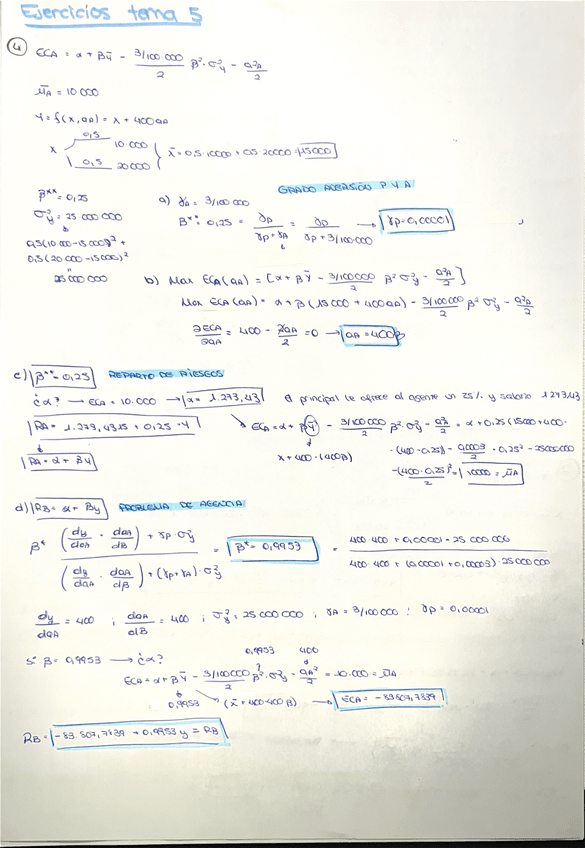 Ejercicios tema 5
4 ECA = α + βȳ - 3/100.000/2 β²·σ²y - a²A/2
ūA = 10 000
Y = f(x,aA) = x + 400aA
x 0,5 10.000
0,5 20000 } x̄ = 0,5·10000 + 0,5·20000 = 15000
GRADO AVERSIÓN P Y A
β** = 0,25 a) γA = 3/100000
σ²y = 25 000 000 β** = 0,25 = γp/γp+γA = γp/γp+3/100000 → γp = 0,00001
0,5(10.000-15000)² +
0,5(20 000-15000)²
"
25 000 000 b) Max ECA(aA) = [α + βȳ - 3/100000/2 β² σ²y - a²A/2]
Max ECA(aA) = α + β(15000 + 400aA) - 3/100000/2 β² σ²y - a²A/2
∂ECA/∂aA = 400 - 2aA/2 = 0 → aA = 400β
c) β** = 0,25 REPARTO DE RIESGOS
¿α? → ECA = 10.000 → α = 1.273,43 El principal le ofrece al agente un 25% y salario 1273,43
RA = 1.273,4315 + 0,25·Y ECA = α + βȳ - 3/100000/2 β²·σ²y - a²A/2 = α + 0,25(15000 + 400·
RA = α + βY x + 400·(400β) ·(400·0,25)) - 0,00003/2 · 0,25² · 25000000
-(400·0,25)²/2 = 10000 = ūA
d) RB = α + βy PROBLEMA DE AGENCIA
β* (dy/daA · daA/dβ) + γp σ²y / (dy/daA · daA/dβ) + (γp+γA)·σ²y = β* = 0,9953 = 400·400 + 0,00001·25 000 000 / 400·400 + (0,00001+0,00003)·25 000 000
dy/daA = 400 ; daA/dβ = 400 ; σ²y = 25 000 000 ; γA = 3/100000 ; γp = 0,00001
Si β = 0,9953 → ¿α? 0,9953 400
ECA = α + βȳ - 3/100000/2 β²·σ²y - aA²/2 = 10.000 = ūA
0,9953 (x̄ + 400·400β) → ECA = -83807,7839
RB = -83.807,7839 + 0,9953y = RB